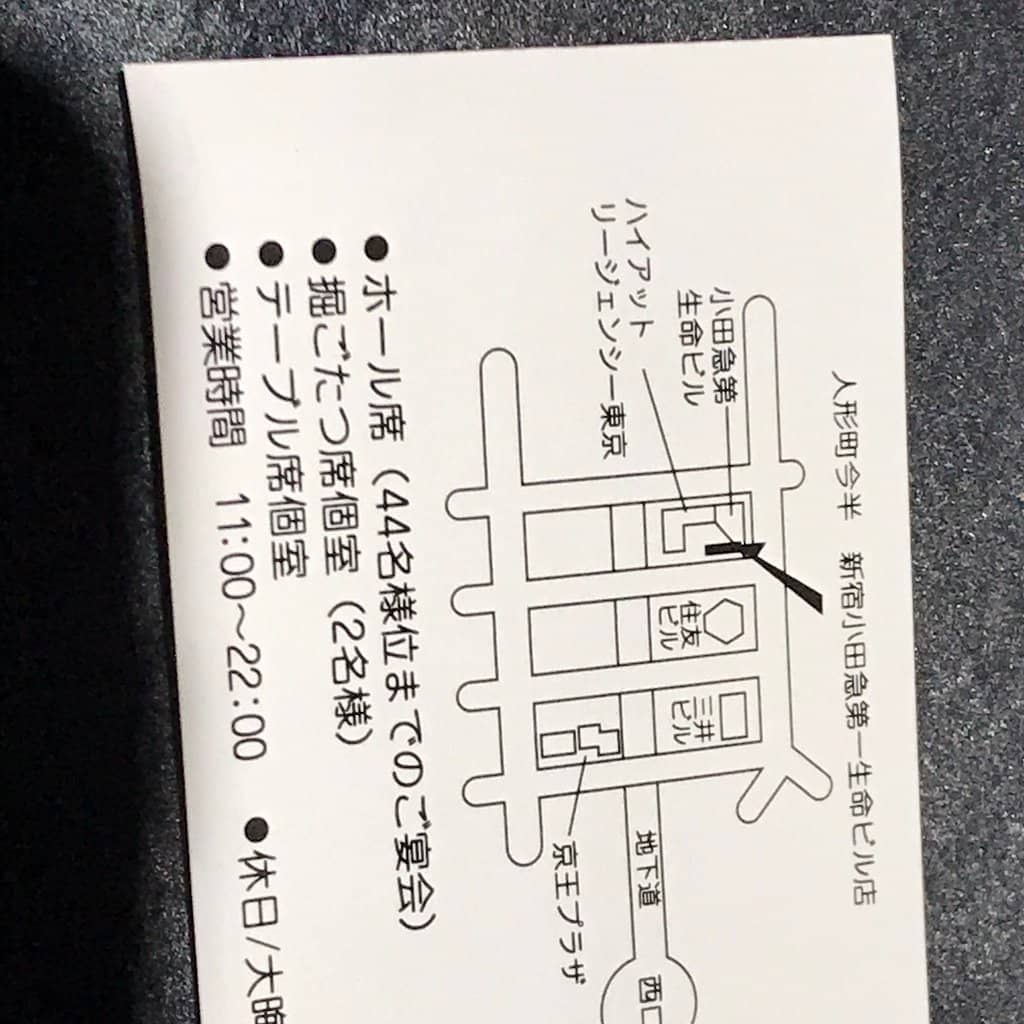 人形町今半 新宿小田急第一生命ビル店
小田急第一
生命ビル
ハイアット
リージェンシー東京
住友
ビル
三井
ビル
地下道
西口
京王プラザ
●ホール席（44名様位までのご宴会）
●掘ごたつ席個室（2名様）
●テーブル席個室
●営業時間 11:00～22:00 ●休日/大晦